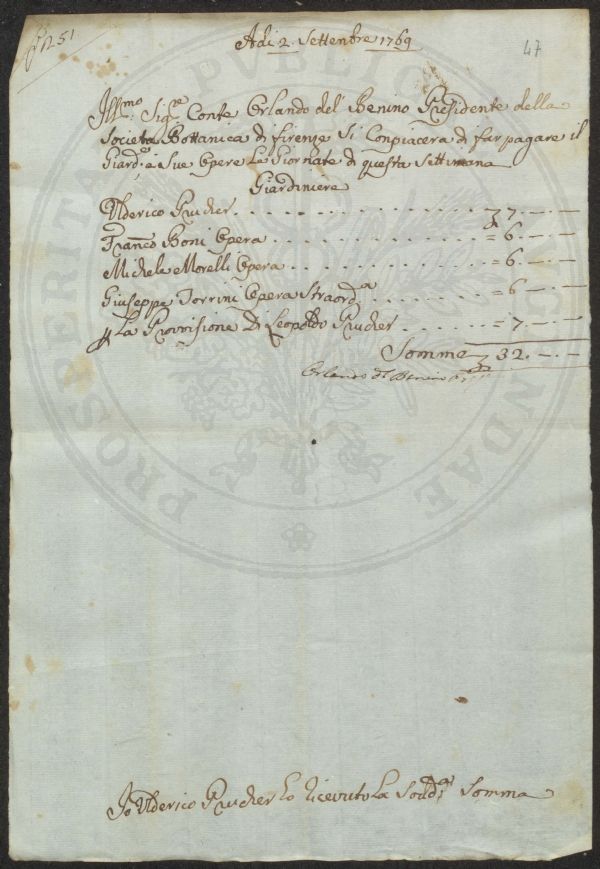 N 251
Adi 2. Settembre 1769
47
Ill.mo Sig.e Conte Orlando del Benino Presidente della
Società Bottanica di firenze Si Conpiacera di far pagare il
Giard.e è Sue Opere La Giornate di questa Settimana
Giardiniere
Ulderico Prucher . . . . . . . . . . . . 7. — —
Franco Boni Opera . . . . . . . . . . = 6. — —
Michele Morelli Opera . . . . . . . . . = 6. — —
Giuseppe Torrini Opera Straord.a . . . . . . = 6 — —
La Provvisione Di Leopoldo Prucher . . . . . . = 7. — —
Somme 32. — —
Orlando Del Benino
Io Ulderico Prucher ho ricevuto La Sodd.a Somma
PROSPERITATI PUBLICAE AUGENDAE